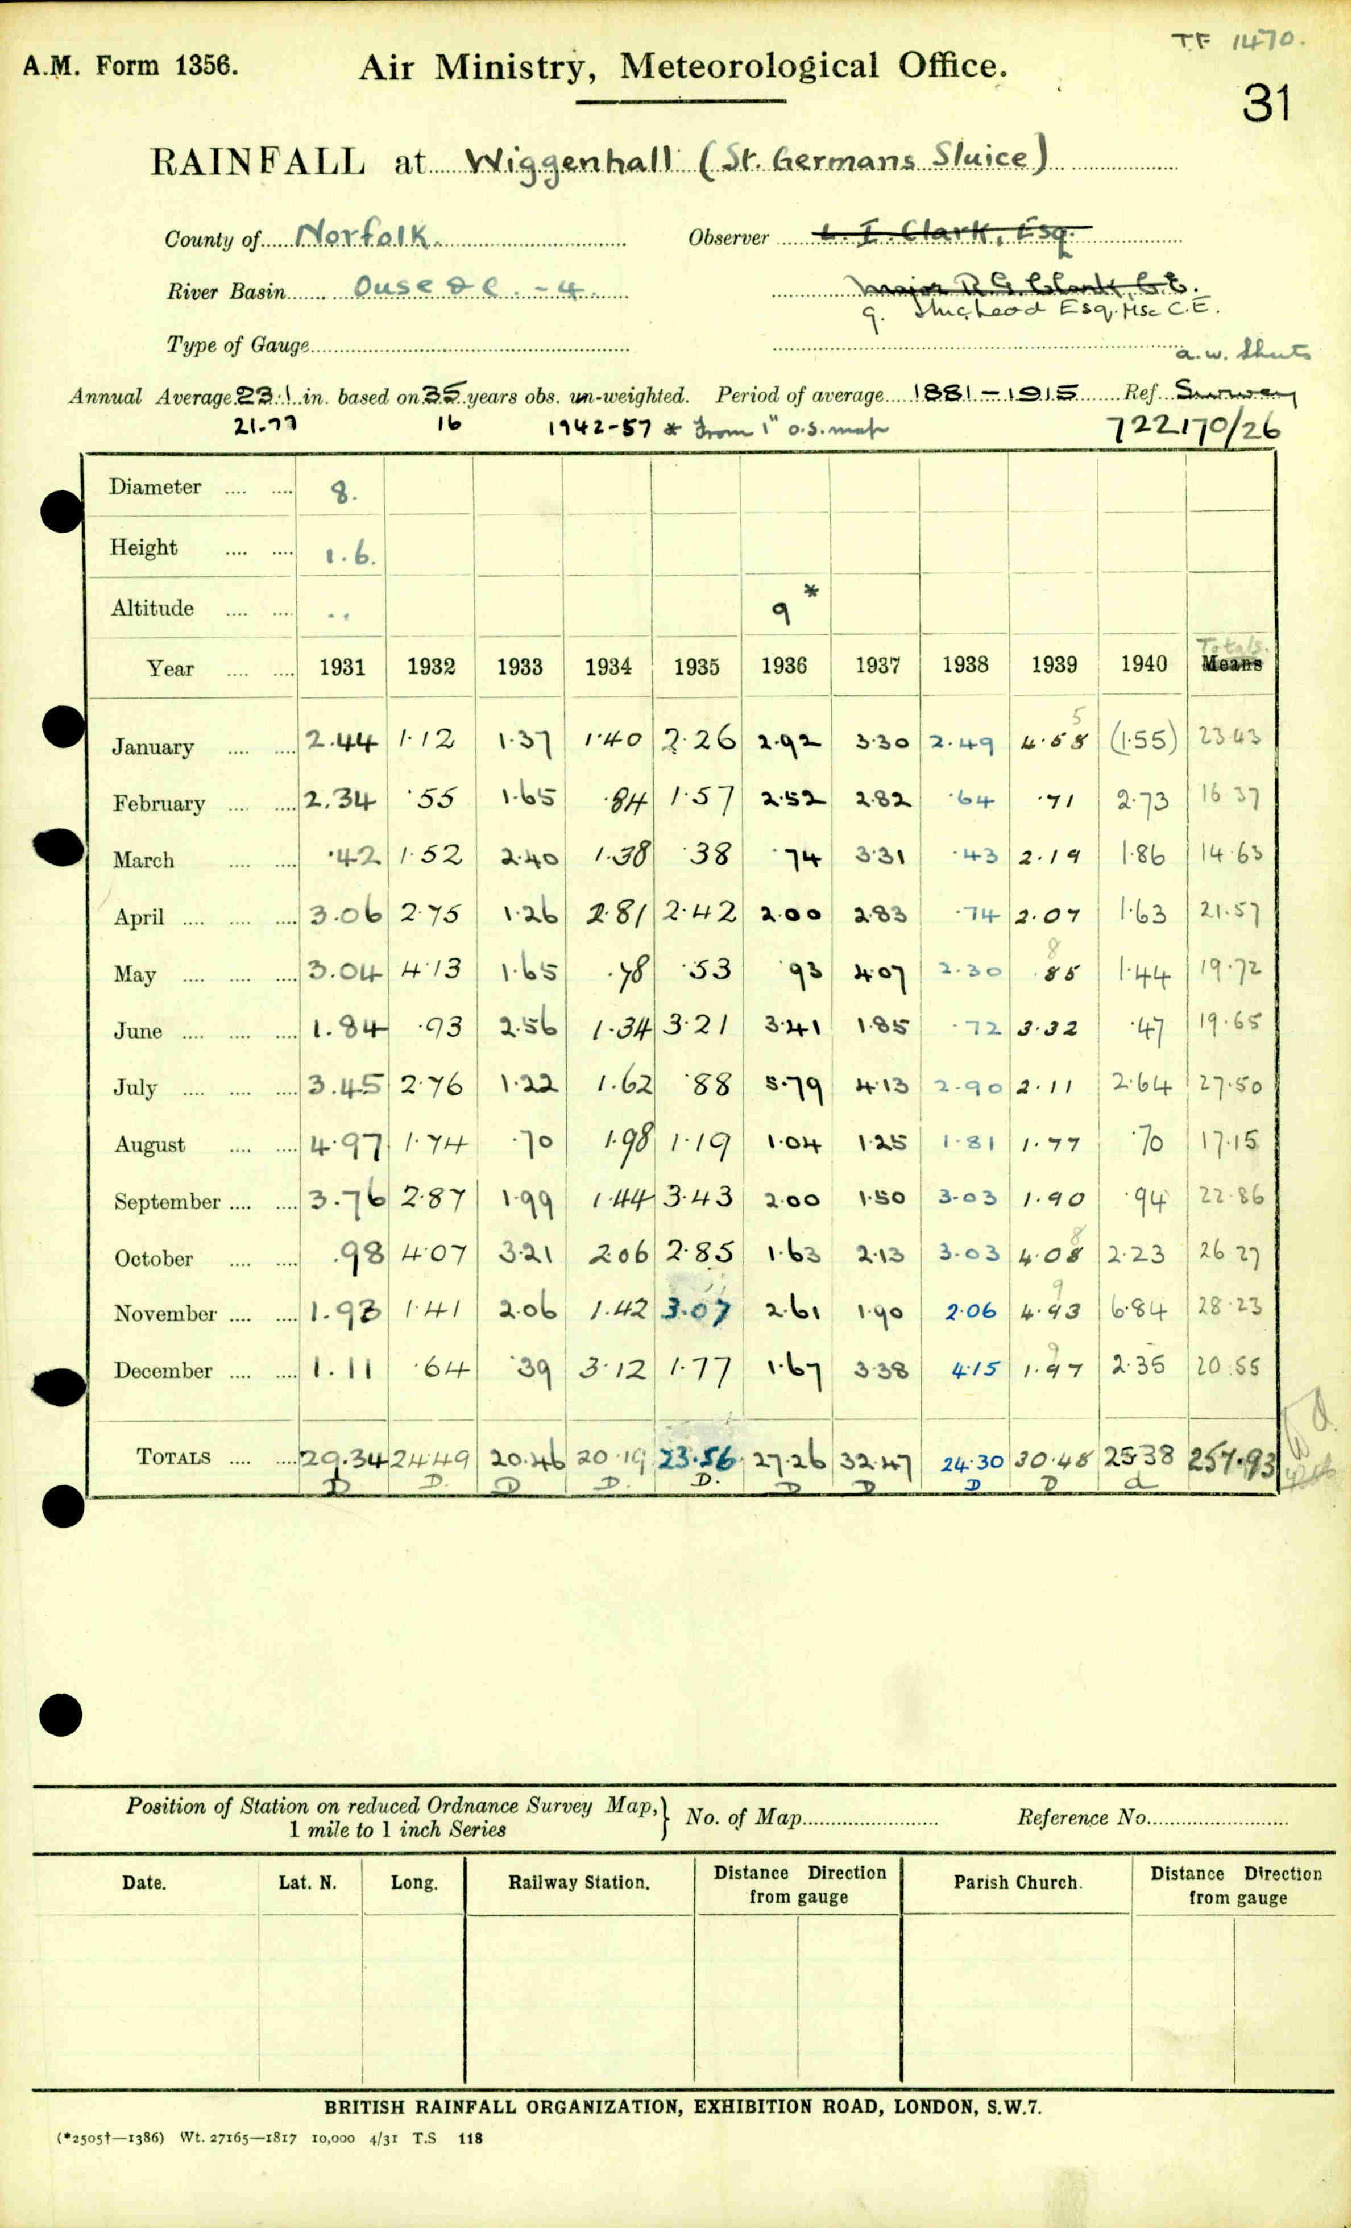 T.F 1470.
A.M. Form 1356.
Air Ministry, Meteorological Office.
31
RAINFALL at Wiggenhall (St. Germans Sluice)
County of Norfolk. Observer L. I. Clark, Esq.
River Basin Ouse &c. - 4. Major R.G. Clark, C.E.
Esq. MSc C.E.
Type of Gauge
a.w.
Annual Average 23.1 in. based on 35 years obs. un-weighted. Period of average 1881-1915 Ref. Survey
21.77 16 1942-57 * From 1" O.S. map 722170/26
Diameter 8.
Height 1.6.
Altitude .. 9*
Totals.
Year 1931 1932 1933 1934 1935 1936 1937 1938 1939 1940 Means
5
January 2.44 1.12 1.37 1.40 2.26 2.92 3.30 2.49 4.58 (1.55) 23.43
February 2.34 .55 1.65 .84 1.57 2.52 2.82 .64 .71 2.73 16.37
March .42 1.52 2.40 1.38 .38 .74 3.31 .43 2.19 1.86 14.63
April 3.06 2.75 1.26 2.81 2.42 2.00 2.83 .74 2.07 1.63 21.57
8
May 3.04 4.13 1.65 .78 .53 .93 4.07 2.30 .85 1.44 19.72
June 1.84 .93 2.56 1.34 3.21 3.41 1.85 .72 3.32 .47 19.65
July 3.45 2.76 1.22 1.62 .88 5.79 4.13 2.90 2.11 2.64 27.50
August 4.97 1.74 .70 1.98 1.19 1.04 1.25 1.81 1.77 .70 17.15
September 3.76 2.87 1.99 1.44 3.43 2.00 1.50 3.03 1.90 .94 22.86
8
October .98 4.07 3.21 2.06 2.85 1.63 2.13 3.03 4.08 2.23 26.27
9
November 1.93 1.41 2.06 1.42 3.07 2.61 1.90 2.06 4.93 6.84 28.23
9
December 1.11 .64 .39 3.12 1.77 1.67 3.38 4.15 1.97 2.35 20.55
TOTALS 29.34 24.49 20.46 20.19 23.56 27.26 32.47 24.30 30.48 25.38 257.93
D D. D D. D. D D D D d
Position of Station on reduced Ordnance Survey Map,} No. of Map Reference No.
1 mile to 1 inch Series
Date. Lat. N. Long. Railway Station. Distance Direction from gauge Parish Church. Distance Direction from gauge
BRITISH RAINFALL ORGANIZATION, EXHIBITION ROAD, LONDON, S.W.7.
(*2505†—1386) Wt. 27165—1817 10,000 4/31 T.S 118